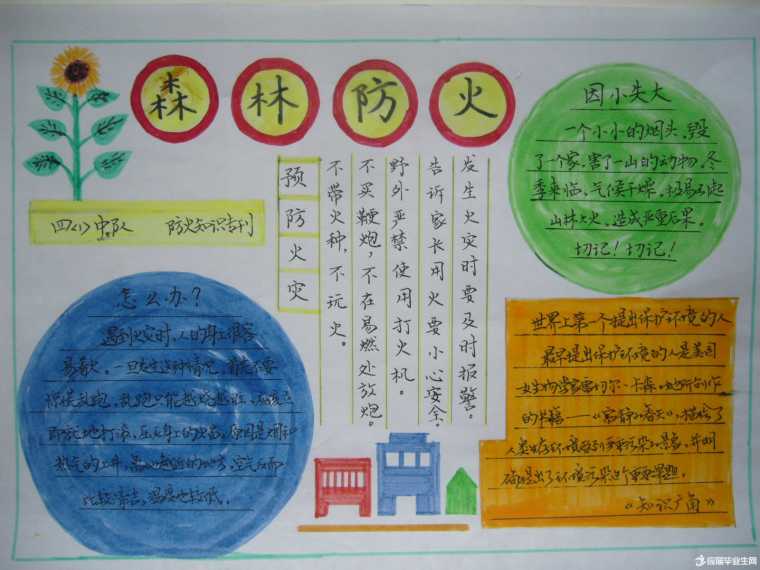 森 林 防 火
四〈1〉中队 防火知识专刊
因小失大
一个小小的烟头,毁
了一个家,害了一山的动物。冬
季来临,气候干燥,极易引起
山林大火,造成严重后果。
切记!切记!
预防火灾
不带火种,不玩火。
不买鞭炮,不在易燃处放炮。
野外严禁使用打火机。
告诉家长用火要小心安全。
发生火灾时要及时报警。
怎么办?
遇到火灾时,人的身上很容
易着火。一旦发生这种情况,首先不要
乱跑只能越烧越旺
热气的上升
比较清洁,温度也较低。
世界上第一个提出保护环境的人
最早提出保护环境的人是美国
女生物学家雷切尔·卡森,她所创作
的书籍——《寂静的春天》,描绘了
人类生存环境受到严重污染的景象,并明
确提出了环境污染这个重要课题。
《知识广角》
应届毕业生网